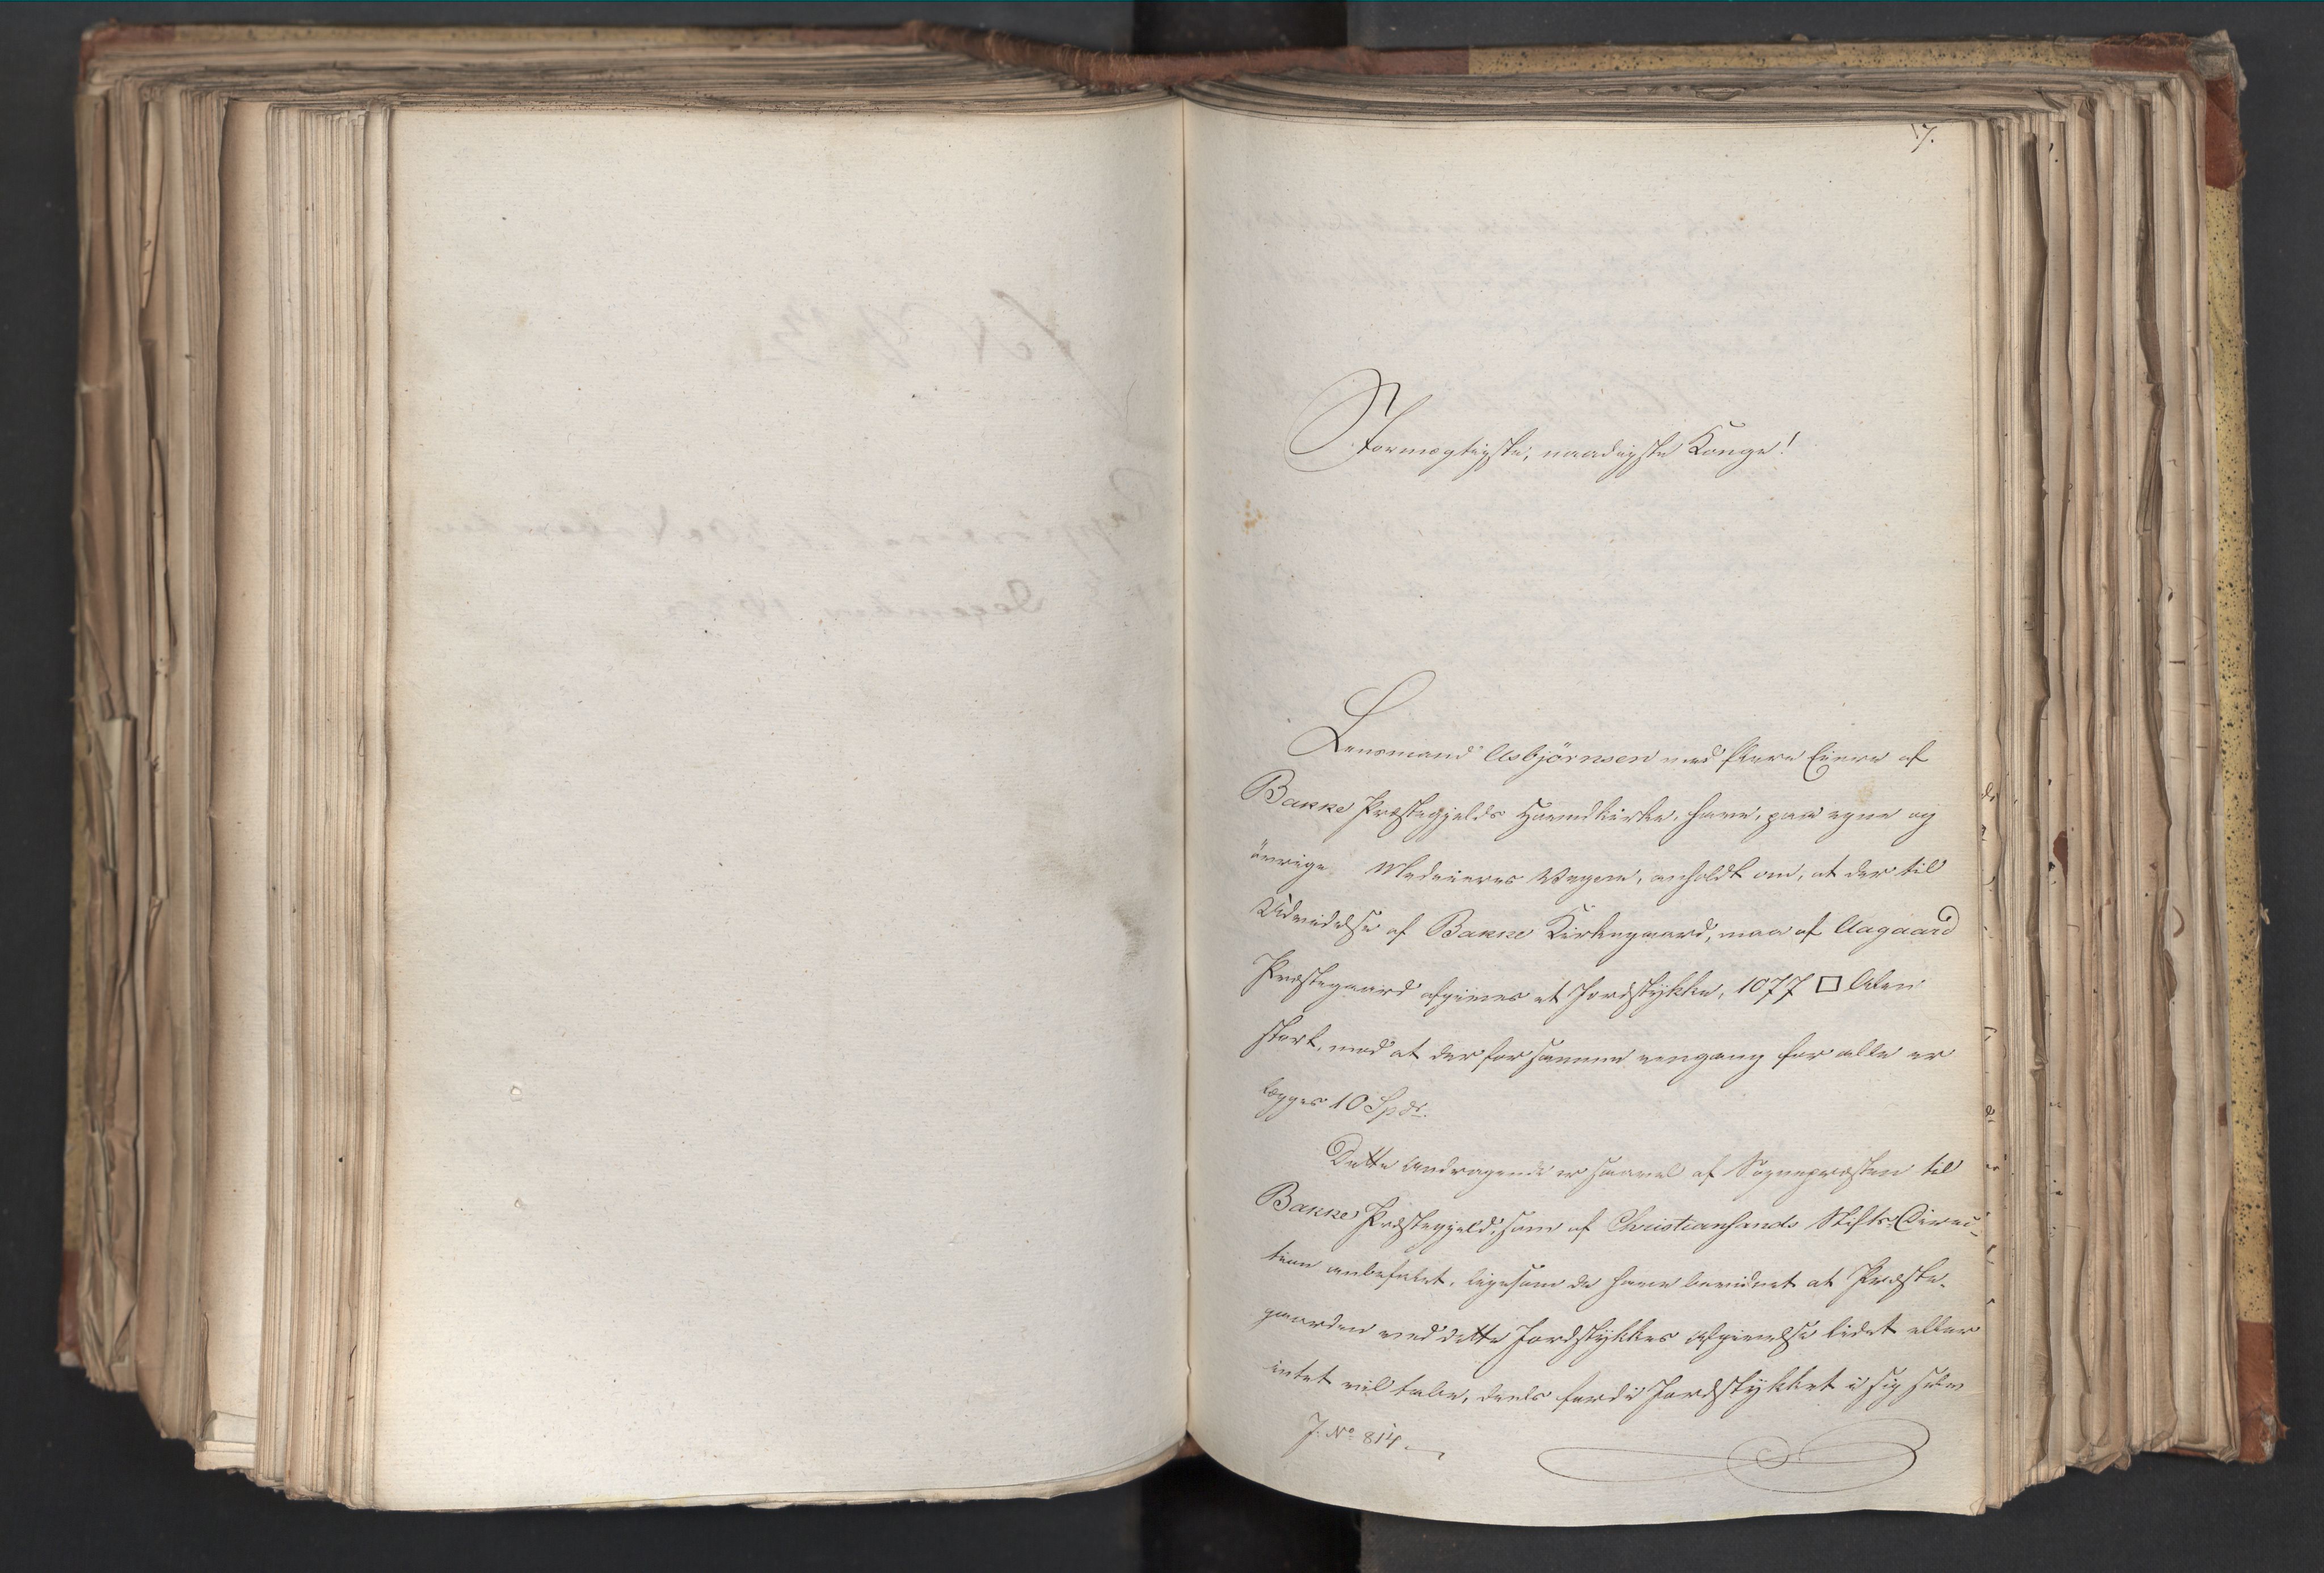 7.
Stormægtigste, naadigste Konge!
Lensmand Asbjørnsen med flere Eiere af
Bakke Præstegjelds Hovedkirke, have, paa egne og
övrige Medeieres Vegne, anholdt om, at der til
Udvidelse af Bakke Kirkegaard, maa af Aagaard
Præstegaard afgives et Jordstykke, 1077 □ Alen
stort, mod at der for samme eengang for alle er
lægges 10 Spdr.
Dette Andragende er saavel af Sognepræsten til
Bakke Præstegjeld, som af Christiansands Stifts-Direc-
tion anbefalet, ligesom de have bevidnet at Præste-
gaarden ved dette Jordstykkes Afgivelse lidet eller
intet vil tabe, deels fordi Jordstykket i sig selv
J. No 814.